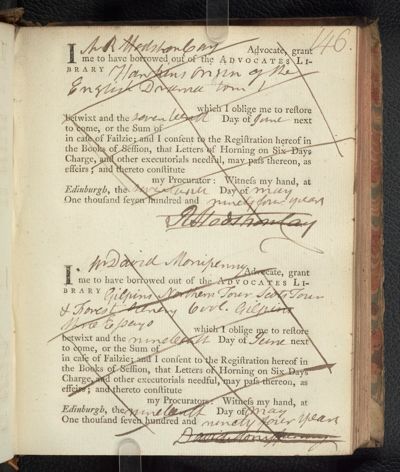 146.
I Mr R Hodshon Cay Advocate, grant
me to have borrowed out of the ADVOCATES LI-
BRARY Hawkins Origin of the
English Drama tom 1
which I oblige me to reſtore
betwixt and the seventeenth Day of June next
to come, or the Sum of
in caſe of Failzie; and I conſent to the Regiſtration hereof in
the Books of Seſſion, that Letters of Horning on Six Days
Charge, and other executorials needful, may paſs thereon, as
effeirs; and thereto conſtitute
my Procurator: Witneſs my hand, at
Edinburgh, the seventeenth Day of May
One thouſand ſeven hundred and ninety four years
R Hodshon Cay
I Mr David Monypenny Advocate, grant
me to have borrowed out of the ADVOCATES LI-
BRARY Gilpins Northern Tour Scots Tour
& Forest Scenery 6 vol. Gilpins
Essays
which I oblige me to reſtore
betwixt and the nineteenth Day of June next
to come, or the Sum of
in caſe of Failzie; and I conſent to the Regiſtration hereof in
the Books of Seſſion, that Letters of Horning on Six Days
Charge, and other executorials needful, may paſs thereon, as
effeirs; and thereto conſtitute
my Procurator: Witneſs my hand, at
Edinburgh, the nineteenth Day of May
One thouſand ſeven hundred and ninety four years
David Monypenny